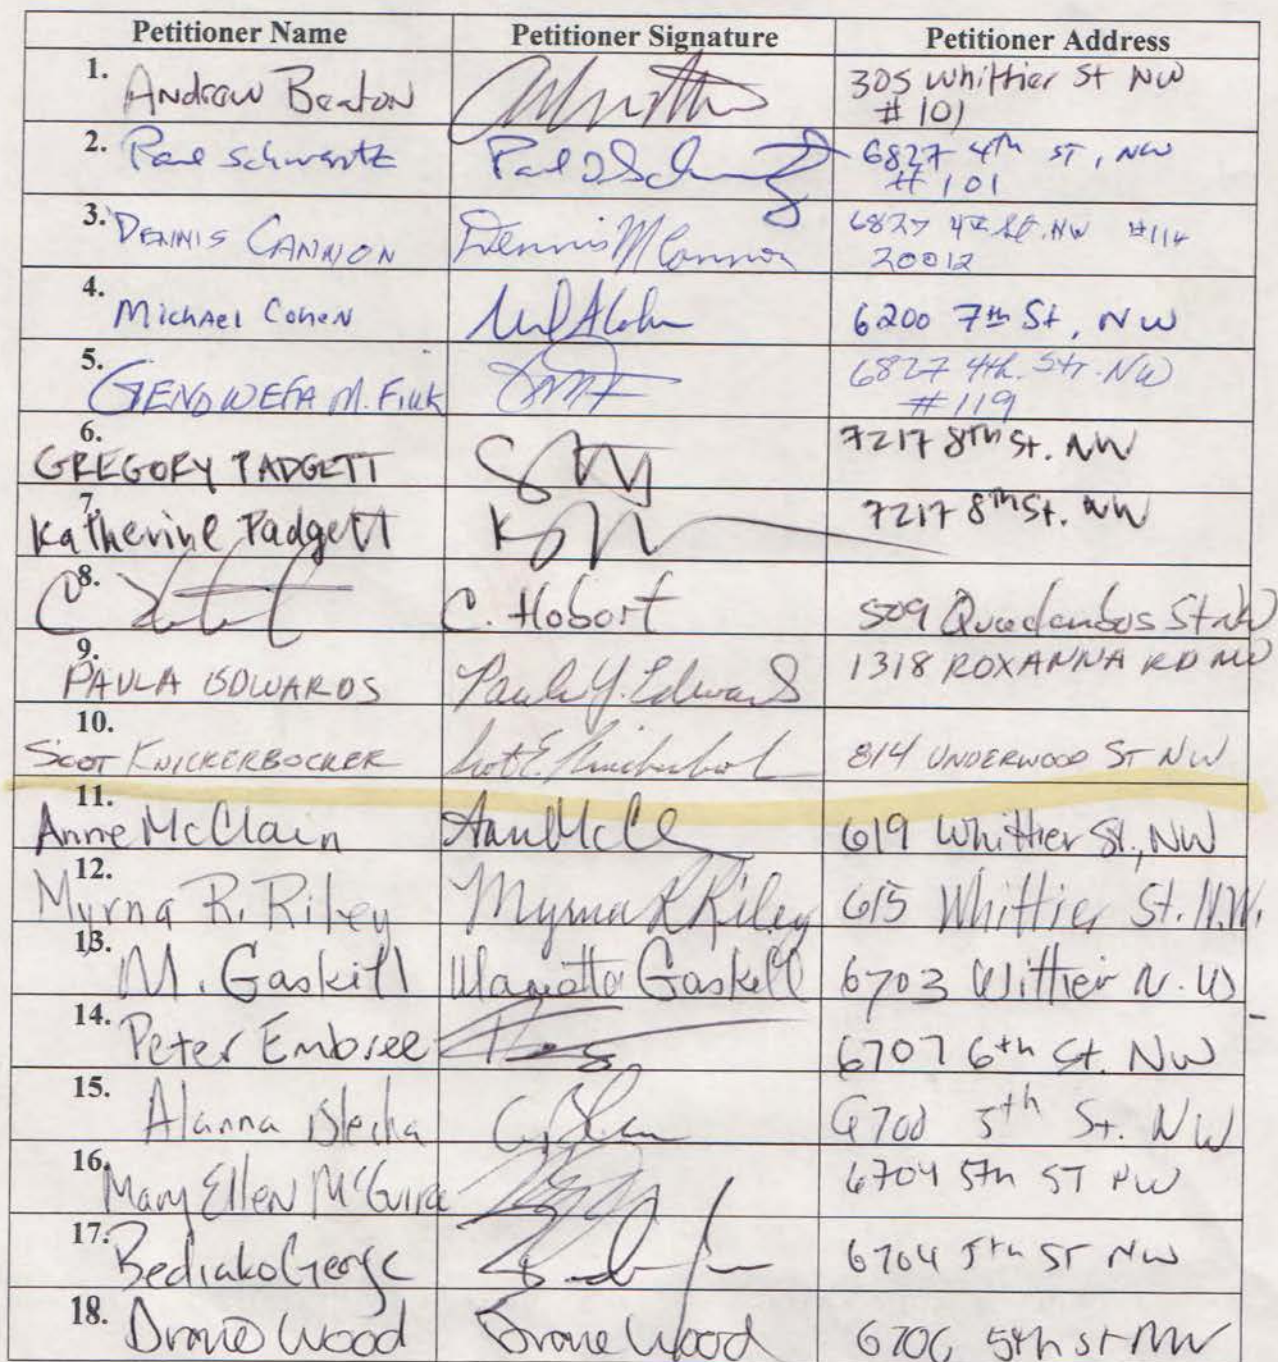 Petitioner Name Petitioner Signature Petitioner Address
1. Andrew Beaton 305 Whittier St NW
# 101
2. Paul Schwartz Paul 6827 4th ST, NW
# 101
3. DENNIS CANNON Dennis M Cannon 6827 4th St. NW #114
20012
4. Michael Cohen 6200 7th St, NW
5. GENOWEFA M. 6827 4th. Str. NW
#119
6. GREGORY PADGETT 7217 8TH St. NW
7. Katherine Padgett 7217 8th St. NW
8. C C. Hobart 509 Quackenbos St NW
9. PAULA EDWARDS Paula Y. Edwards 1318 ROXANNA RD NW
10. SCOT KNICKERBOCKER Scot E. Knickerbocker 814 UNDERWOOD ST NW
11. Anne McClain 619 Whittier St., NW
12. Myrna R. Riley Myrna R Riley 615 Whittier St. N.W.
13. M. Gaskill Gaskill 6703 Wittier N.W
14. Peter Embree 6707 6th St. NW
15. Alanna Blecha 5th St. NW
16. Mary Ellen McGuire 6704 5th ST NW
17. Bediako George 6704 5th ST NW
18. Wood Wood 6706 5th St NW